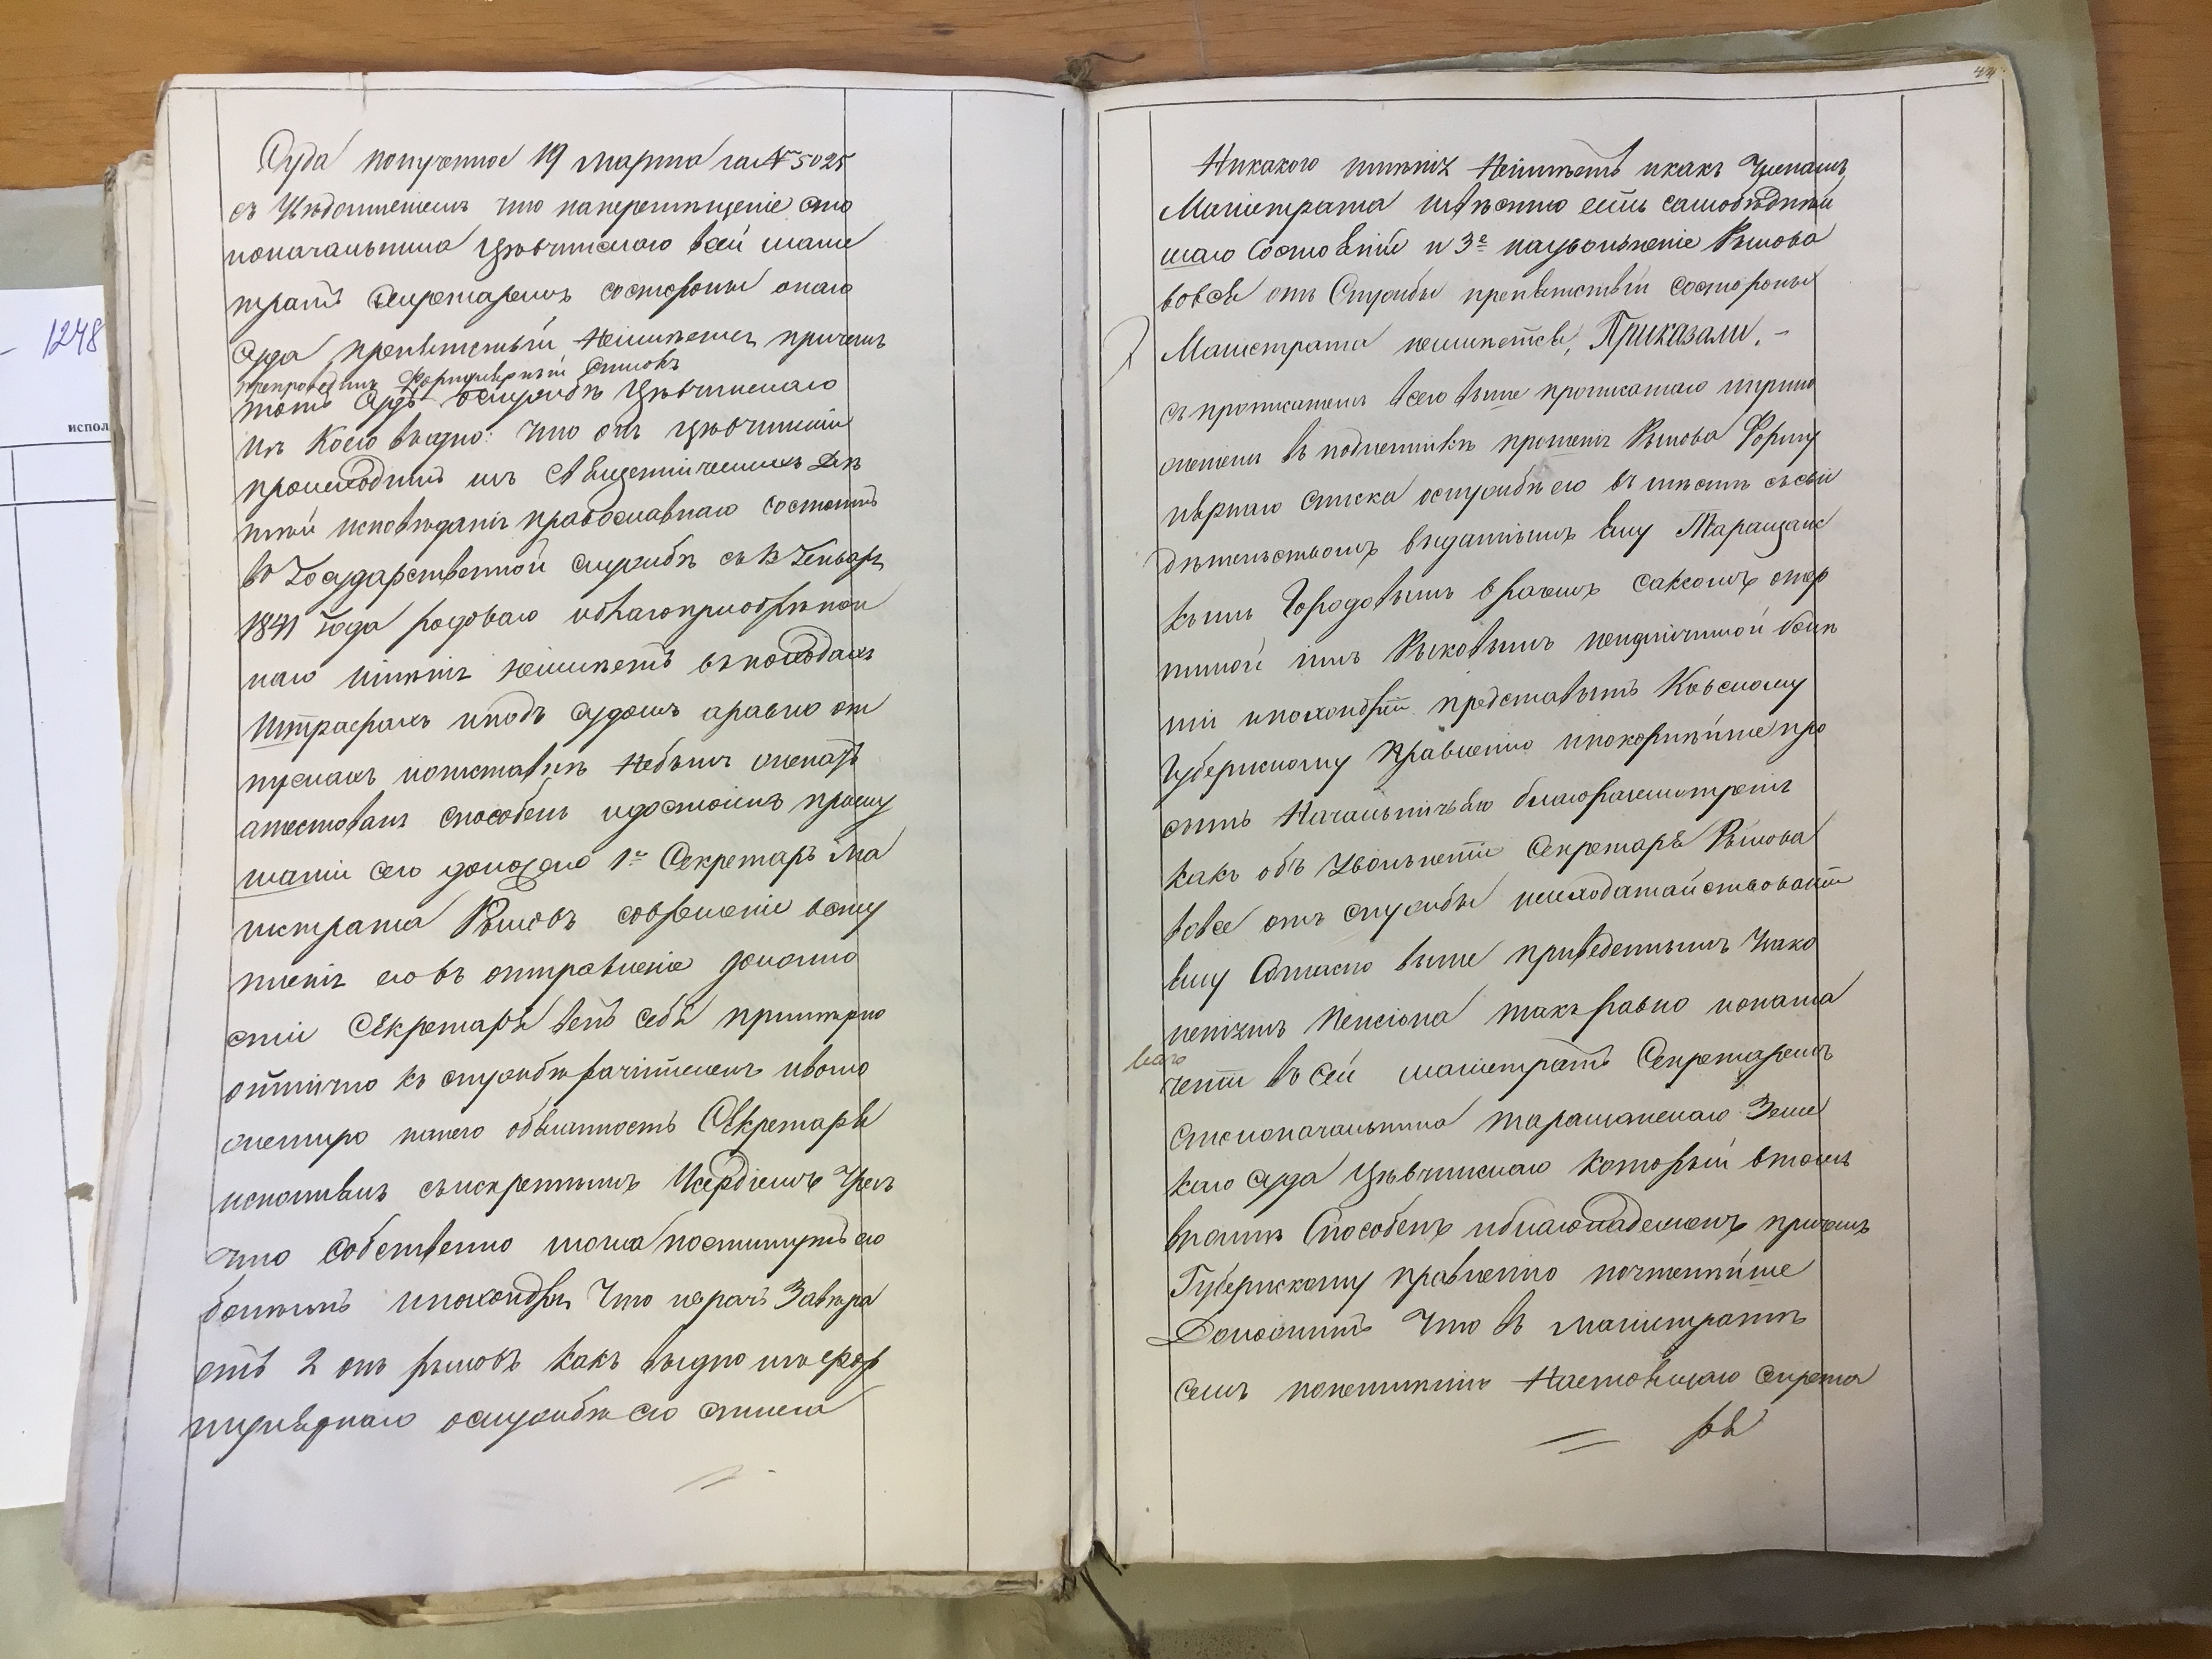 Суда полученное 19 марта за № 5025
съ Уведомлениемъ что наперемещение сто
лоначальника Цевчинскаго в сей маги
тратъ Секретаремъ состороны онаго
Суда препятствий Неимеетъ причемъ
препроводилъ Формулярный Списокъ
тотъ Судъ ослужбе Цевчинскаго
изъ коего видно: что онъ Цевчинский
происходитъ изъ Священническихъ де
тей исповедания православнаго состоитъ
в Государственной службе съ Генваря
1841 года родоваго иблагоприобретен
наго имения неимеетъ впоходахъ
Штрафахъ иподъ судомъ аравно от
пускахъ иотставке Небылъ
аттестованъ способенъ идостоинъ
сего доложено 1е Секретарь Ма
гистрата Рыковъ современи всту
пления его въ отправление должно
сти Секретаря велъ себя примерно
отлично къ службе рачителенъ ивозло
женную нанего обязанность Секретаря
исполнялъ съискреннимъ Усердиемъ Чрезъ
что собственно могла постигнуть его
болезнь ипохондрия Что иврачъ Завера
етъ 2 онъ Рыковъ какъ видно изъ фор
мулярнаго ослужбе его списка
44
Никакого имения Неимеетъ икакъ Членамъ
Магистрата известно есть самобедней
шаго Состояния и 3е наувольнение Рыкова
вовся отъ Службы препятствий состороны
Магистрата неимеется, Приказали. –
съ прописаниемъ всего выше прописаннаго иприло
жениемъ въ подлиннике прошения Рыкова Форму
лярнаго списка ослужбе его вместе съсви
детельствомъ выданнымъ ему Таращанс
кимъ Городовымъ врачемъ одер
жимой имъ Рыковымъ болез
ни ипохондрии представить Киевскому
Губернскому Правлению ипокорнейше про
сить Начальничьяго благоразсмотрения
какъ объ Увольнении Секретаря Рыкова
вовся отъ службы иисходатайствовании
ему Согласно выше приведеннымъ Узако
нениямъ Пенсиона такъ равно ионазна
чении въ сей магистратъ Секретаремъ
Столоначальника Таращанскаго Земс
каго суда Цевчинскаго который втомъ
звании Способенъ иблагонадеженъ причемъ
Губернскому правлению почтеннейше
Доложить Что въ магистрате
семъ понеимению Настоящаго секрета
ря
1248
испол